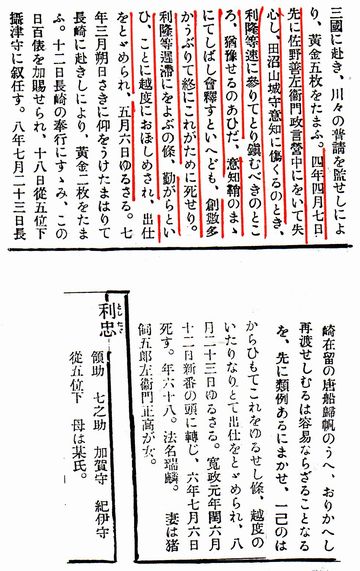 三國に赴き、川々の普請を監せしによ
り、黃金五枚をたまふ。四年四月七日
先に佐野善左衞門政言營中にをいて失
心し、田沼山城守意知に傷くるのとき、
利隆等速に參りてとり鎭むべきのとこ
ろ、猶豫せるのあひだ、意知鞘のまゝ
にてしばし會釋すといへども、創數多
かうぶりて終にこれがために死せり。
利隆等遲滯にをよぶの條、勤がらとい
ひ、ことに越度におぼしめされ、出仕
をとゞめられ、五月六日ゆるさる。七
年三月朔日さきに仰をうけたまはりて
長崎に赴きしにより、黃金二枚をたま
ふ。十二日長崎の奉行にすゝみ、この
日百俵を加賜せられ、十八日從五位下
攝津守に叙任す。八年七月二十三日長
崎在留の唐船歸帆のうへ、おりかへし
再渡せしむるは容易ならざることなる
を、先に類例あるにまかせ、一己のは
からひもてこれをゆるせし條、越度の
いたりなりとて出仕をとゞめられ、八
月二十三日ゆるさる。寬政元年閏六月
十二日新番の頭に轉じ、六年七月六日
死す。年六十八。法名瑞麟。 妻は猪
飼五郎左衞門正高が女。
利忠
領助 七之助 加賀守 紀伊守
從五位下 母は某氏。